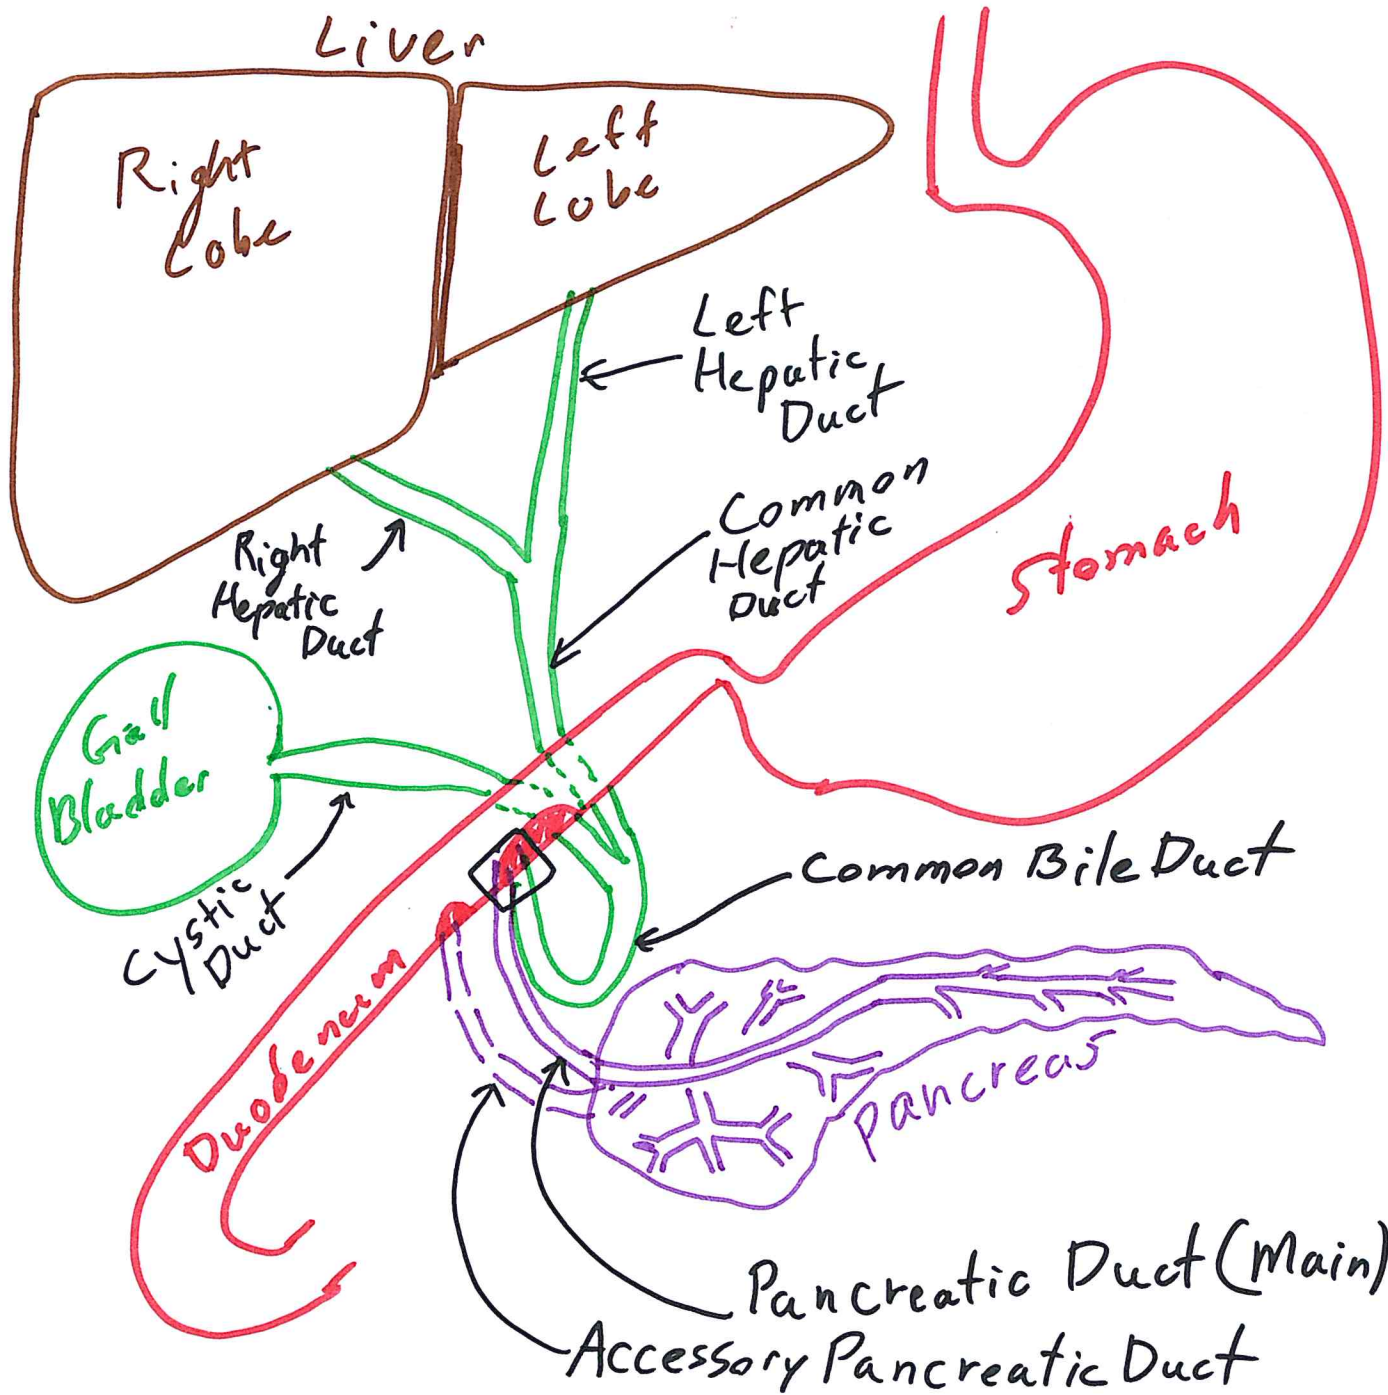 Liver
Right
Lobe
Left
Lobe
Left
Hepatic
Duct
Common
Hepatic
Duct
Stomach
Right
Hepatic
Duct
Gall
Bladder
Cystic
Duct
Common Bile Duct
Duodenum
Pancreas
Pancreatic Duct (Main)
Accessory Pancreatic Duct